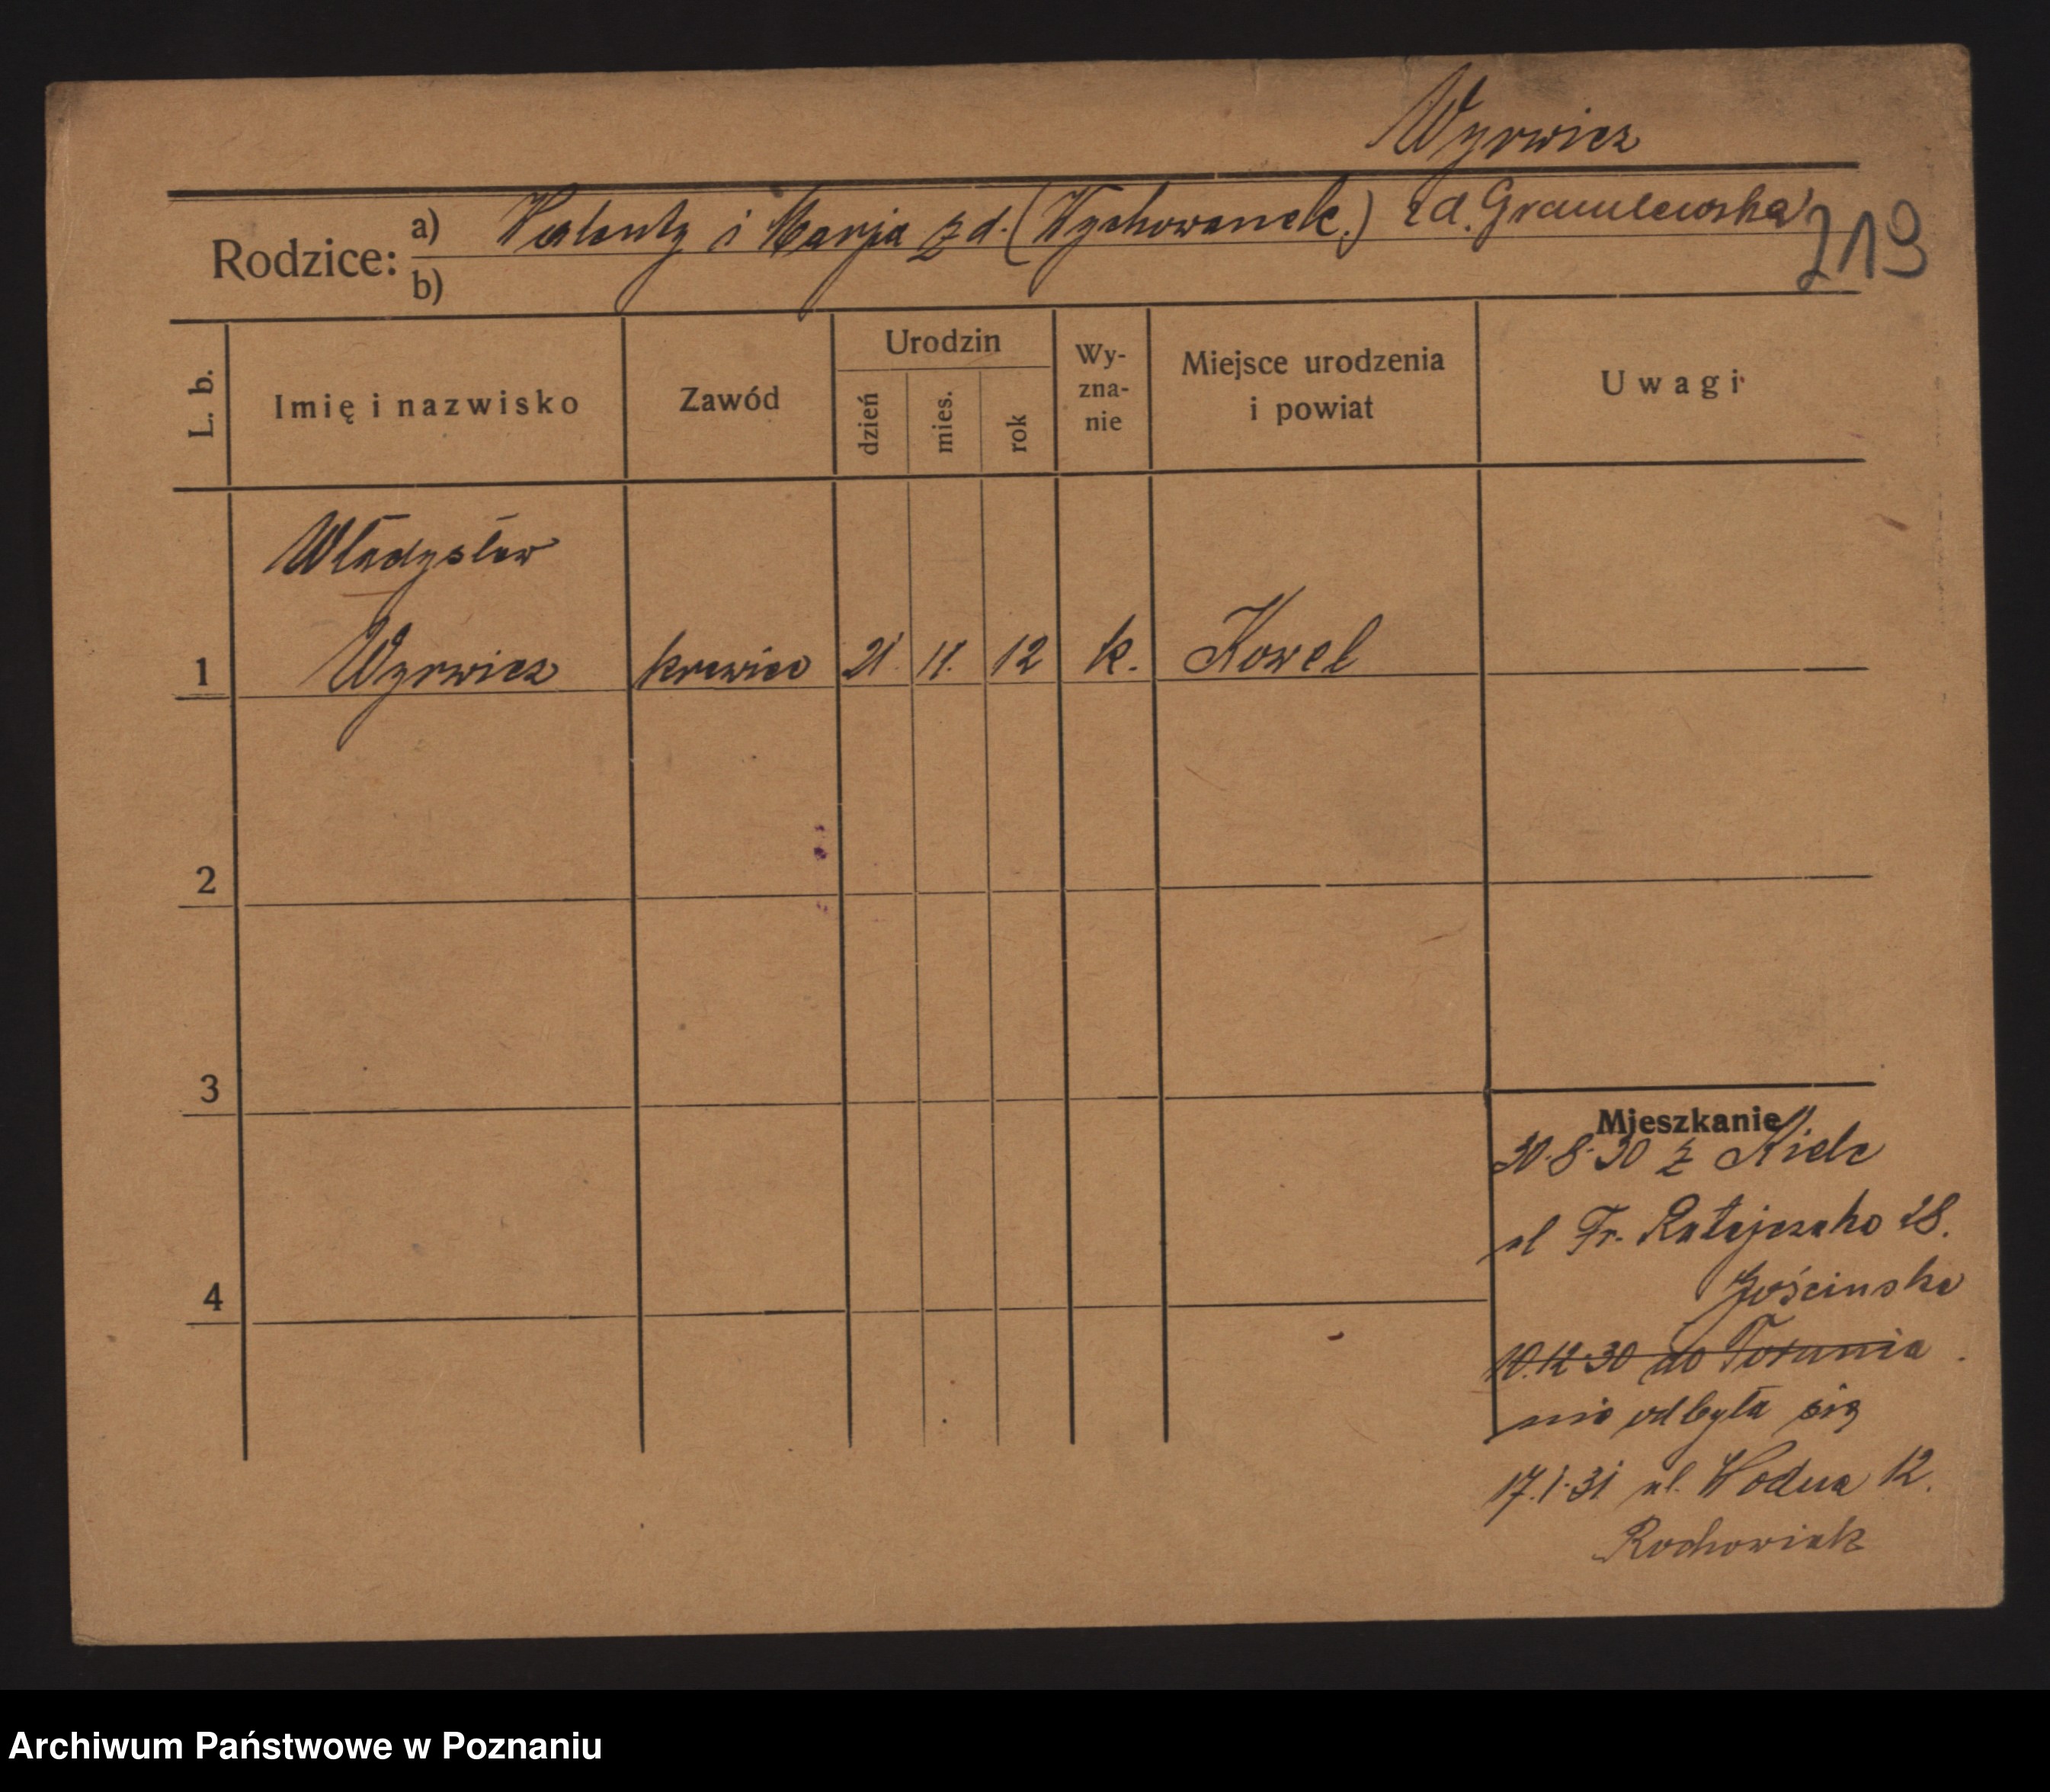 Wyrwicz
Rodzice: a) Walenty i Marja z d. (Wychowanek.) z d.
b)
219
L. b.
Imię i nazwisko
Zawód
Urodzin
dzień
mies.
rok
Wy-
zna-
nie
Miejsce urodzenia
i powiat
Uwagi
Władysław
1 Wyrwicz krawiec 21. 11. 12 k. Kowel
2
3
4
Mieszkanie
30.8.30 z Kielc
ul Fr. Ratajczaka 28.
Gościnska
10.12.30 do Torunia
nie odbyła się
17.1.31 ul. Wodna 12.
Rochowiak
Archiwum Państwowe w Poznaniu